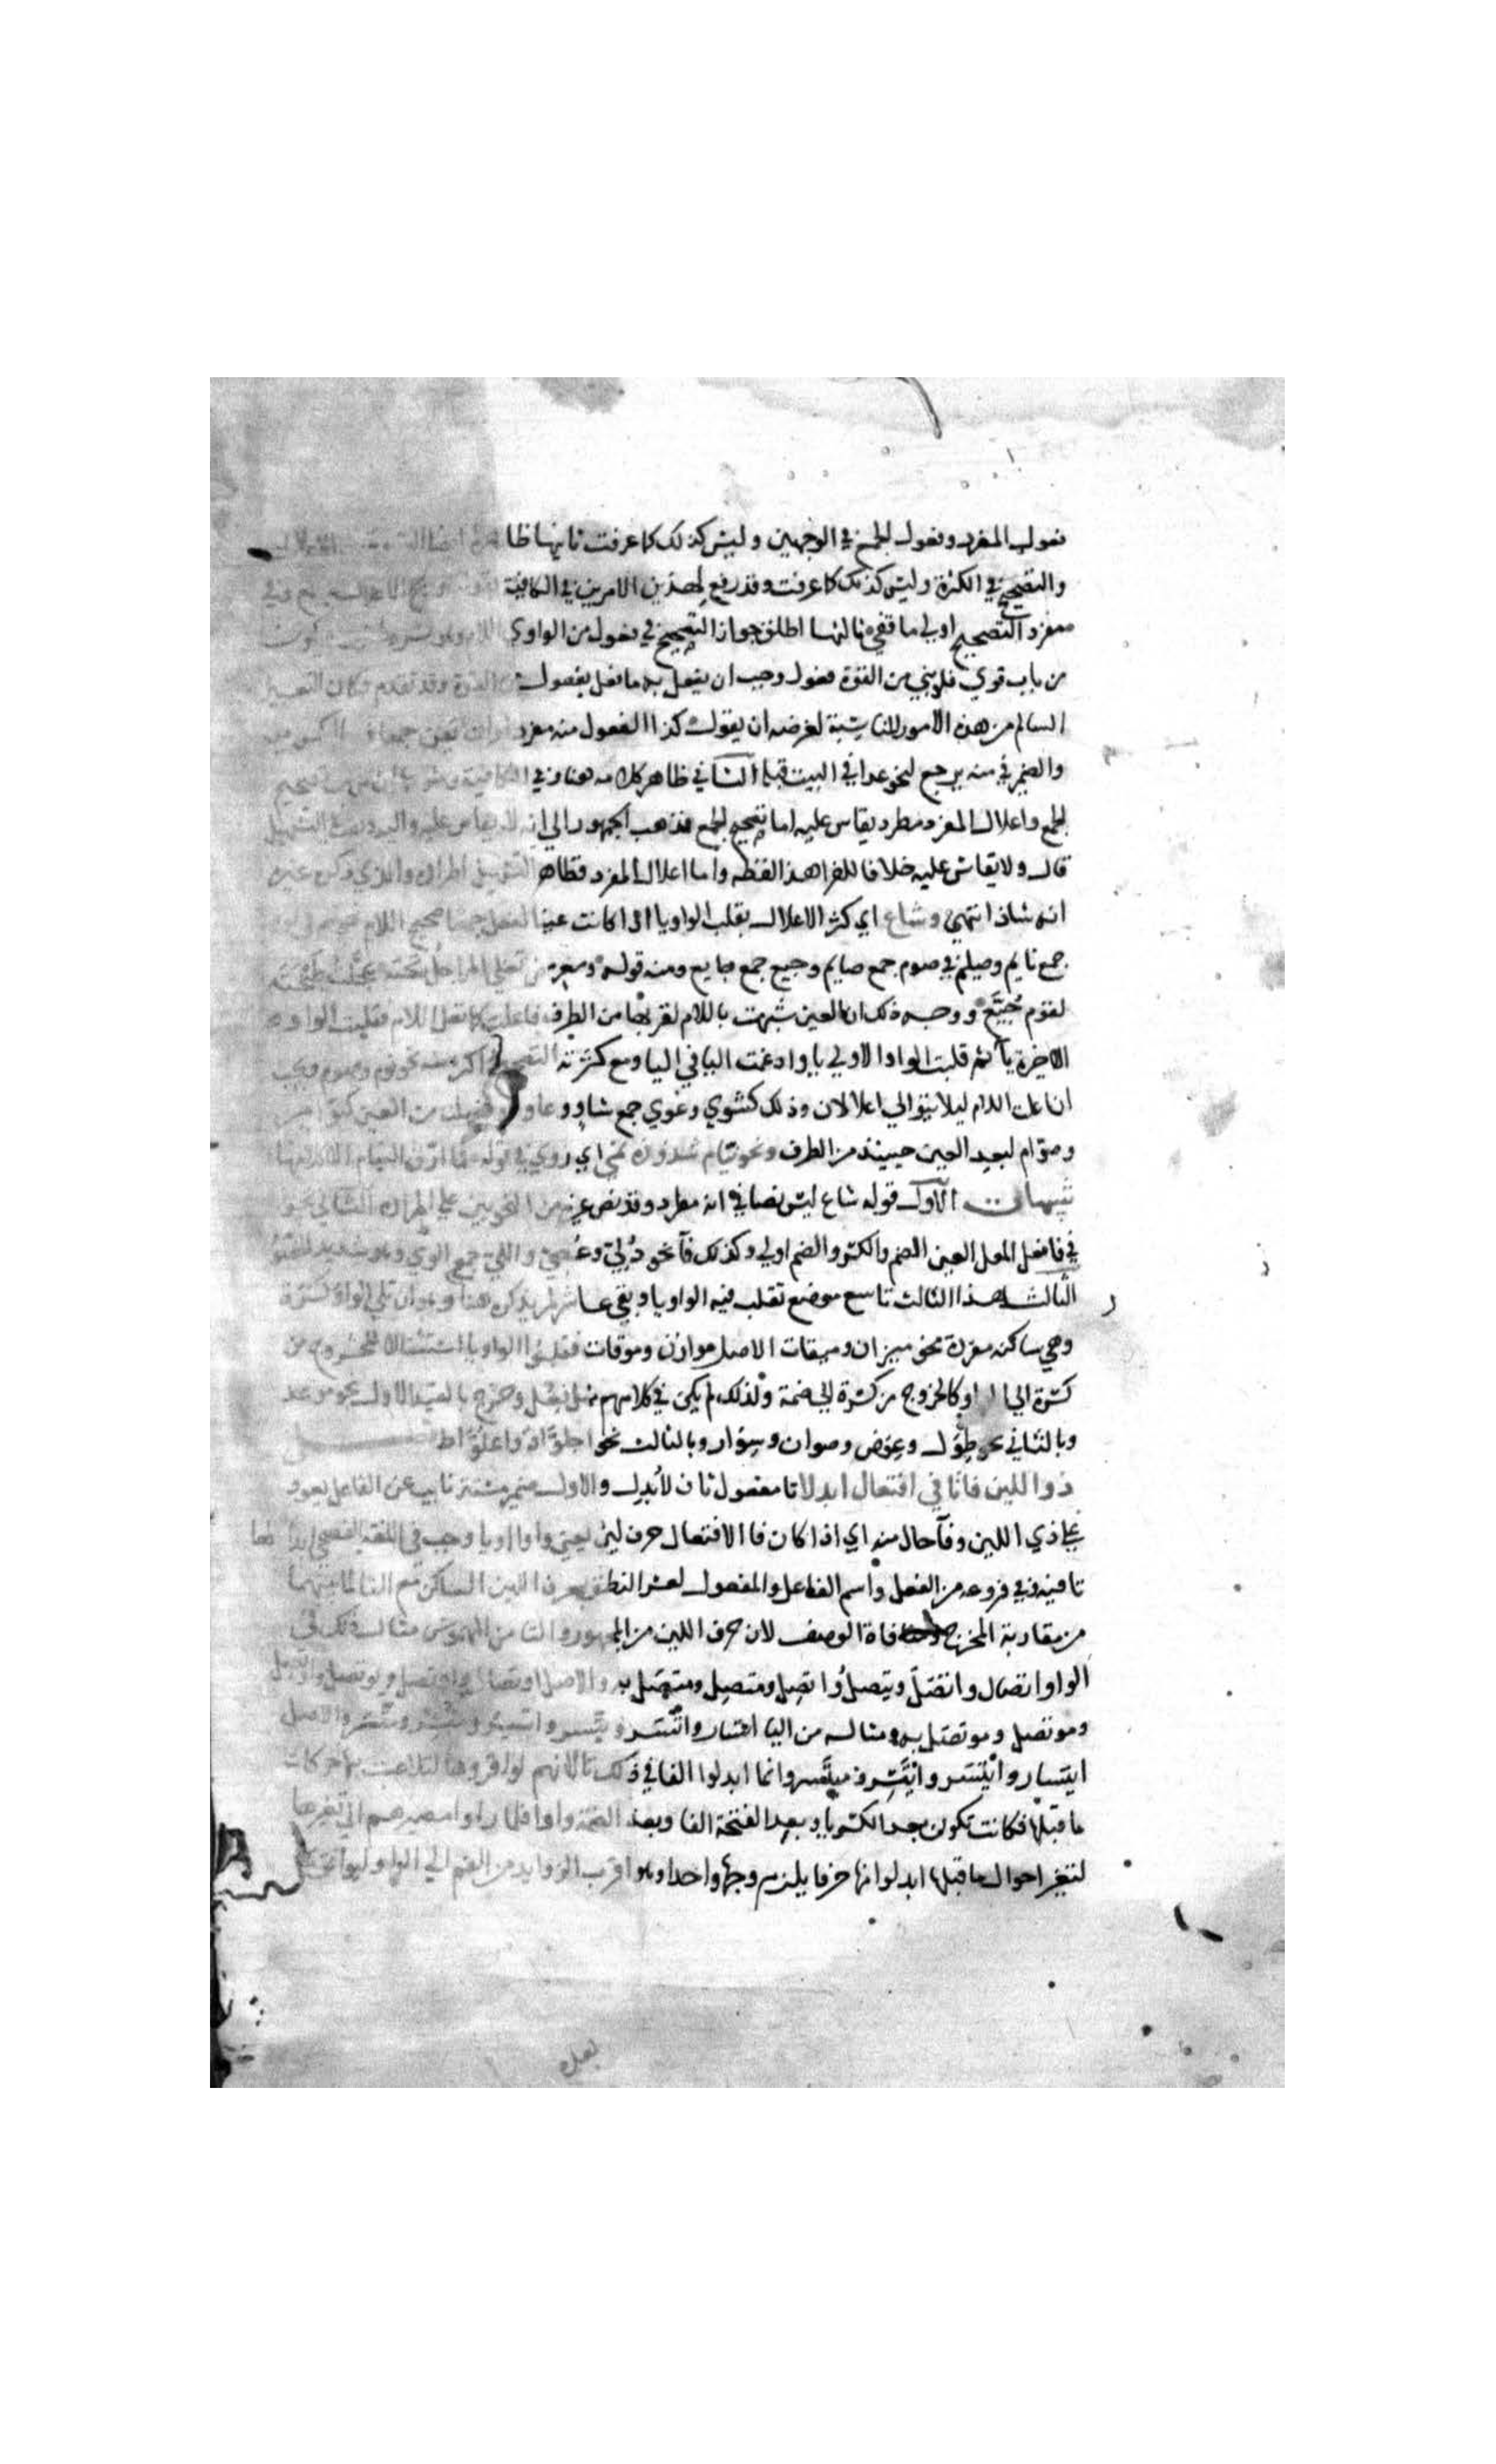 فعول المفرد وفعول الجمع في الوجهين وليس كذلك كما عرفت ثانيها ظا
والتصحيح في الكثرة وليس كذلك كما عرفت وقد رفع لهذين الامرين في الكافية
مفرد التصحيح اولى ما قفي ثالثها اطلق جواز التصحيح في فعول من الواوي
من باب قوي فلو بني من القوة فعول وجب ان يفعل به ما فعل بمفعول من القوة وقد تقدم فكان التعبير
السالم من هذه الامور المناسبة لغرضه ان يقول كذا الفعول منه مفردا وان
والضمير في منه يرجع لنحو عدا في البيت قبله الثاني ظاهر كلامه هنا وفي الكافية
الجمع واعلال المفرد مطرد يقاس عليه اما تصحيح الجمع فذهب الجمهور الى انه لا يقاس عليه
قال ولا يقاس عليه خلافا للفرا هذا لفظه واما اعلال المفرد فظاهر التسهيل اطراده والذي ذكره غيره
انه شاذ انتهى وشاع اي كثر الاعلال بقلب الواو يا اذا كانت عينا لفعل جمعا صحيح اللام
جمع نايم وصيم في صوم جمع صايم وجيع جمع جايع ومنه قوله ومعرض تغلي المراجل تحته عجلت طبخته
لقوم جيع ووجه ذلك ان العين شبهت باللام لقربها من الطرف فاعلت كما تعل اللام فقلبت الواو
الاخيرة يا ثم قلبت الواو الاولى يا وادغمت اليا في اليا ومع كثرته التصحيح اكثر منه نحو نوم وصوم ويجب
ان اعلت اللام ليلا يتوالى اعلالان وذلك كشوي وغوي جمع شاو وغاو
وصوام لبعد العين حينيذ من الطرف ونحو نيام شذوذه نمي اي روي في قوله فما ارق النيام الا كلامها
تنبيهات الاول قوله شاع ليس نصا في انه مطرد وقد نص غيره من النحويين على اطراده الثاني يجوز
في فا فعل المعل العين الضم والكسر والضم اولى وكذلك فا نحو دلي وعصي
الثالث هذا الثالث تاسع موضع تقلب فيه الواو يا وبقي عاشر لم يذكره هنا وهو ان تلي الواو كسرة
وهي ساكنة مفردة نحو ميزان وميقات الاصل موازن وموقات فقلبوا الواو يا استثقالا للخروج من
كسرة الى الواو كالخروج من كسرة الى ضمة ولذلك لم يكن في كلامهم مثل فعل وخرج بالقيد الاول نحو موعد
وبالثاني نحو طول وعوض وصوان وسوار وبالثالث نحو اجلواذ واعلواط
ذو اللين فا تا في افتعال ابدلا تا مفعول ثان لابدل والاول ضمير مستتر نايب عن الفاعل يعود
على ذي اللين وفا حال منه اي اذا كان فا الافتعال حرف لين يعني واوا او يا وجب في اللغة الفصحى ابدالها
تا فيه وفي فروعه من الفعل واسم الفاعل والمفعول لعسر النطق بحرف اللين الساكن مع التا لما بينهما
من مقاربة المخرج ومنافاة الوصف لان حرف اللين من المجهور والتا من المهموس مثال ذلك في
الواو اتصال واتصل ويتصل واتصل ومتصل ومتصل به والاصل اوتصال واوتصل ويوتصل واوتصل
وموتصل وموتصل به ومثاله من اليا اتسار واتسر ويتسر واتسر ومتسر ومتسر والاصل
ايتسار وايتسر وايتسر وميتسر وانما ابدلوا الفا في ذلك تا لانهم لو اقروها لتلاعبت بها حركات
ما قبلها فكانت تكون بعد الكسر يا وبعد الفتحة الفا وبعد الضمة واوا فلما راوا مصيرهم الى تغيرها
لتغير احوال ما قبلها ابدلوا منها حرفا يلزم وجها واحدا وهو اقرب الزوايد من الفم الى الواو
بعده